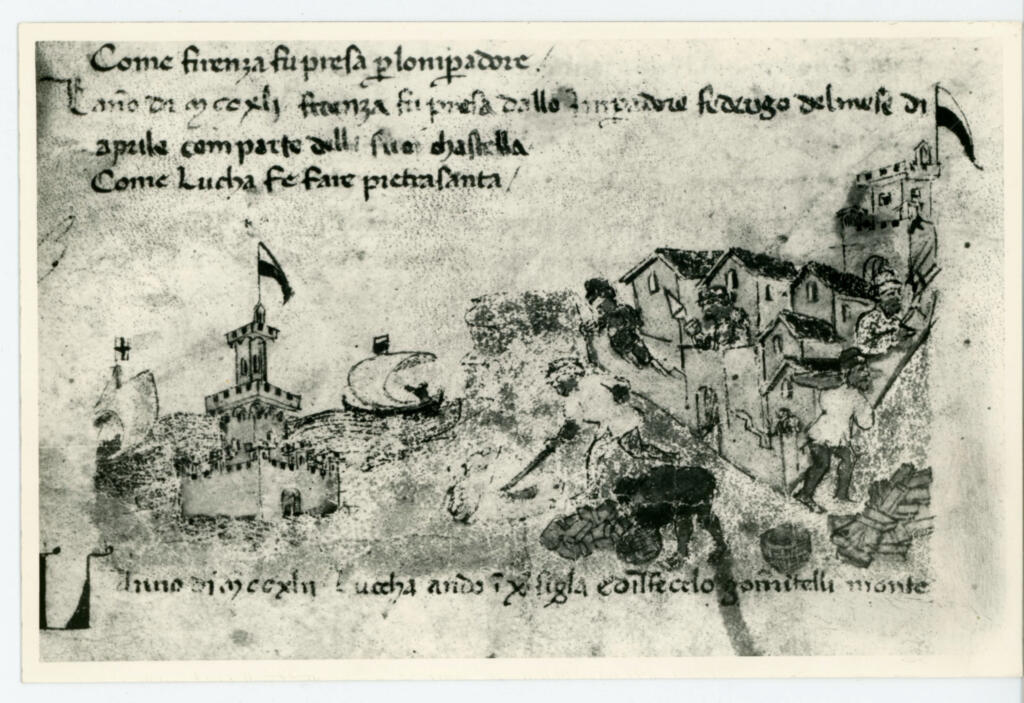 Come firenza fu presa p lonipadore
L anno di MCCXLI firenza fu presa dallo Inipadore federigo del mese di
aprile com parte delli suoi chastella
Come Lucha fe fare pietrasanta
L anno di MCCXLII Luccha ando i e gomitelli monte